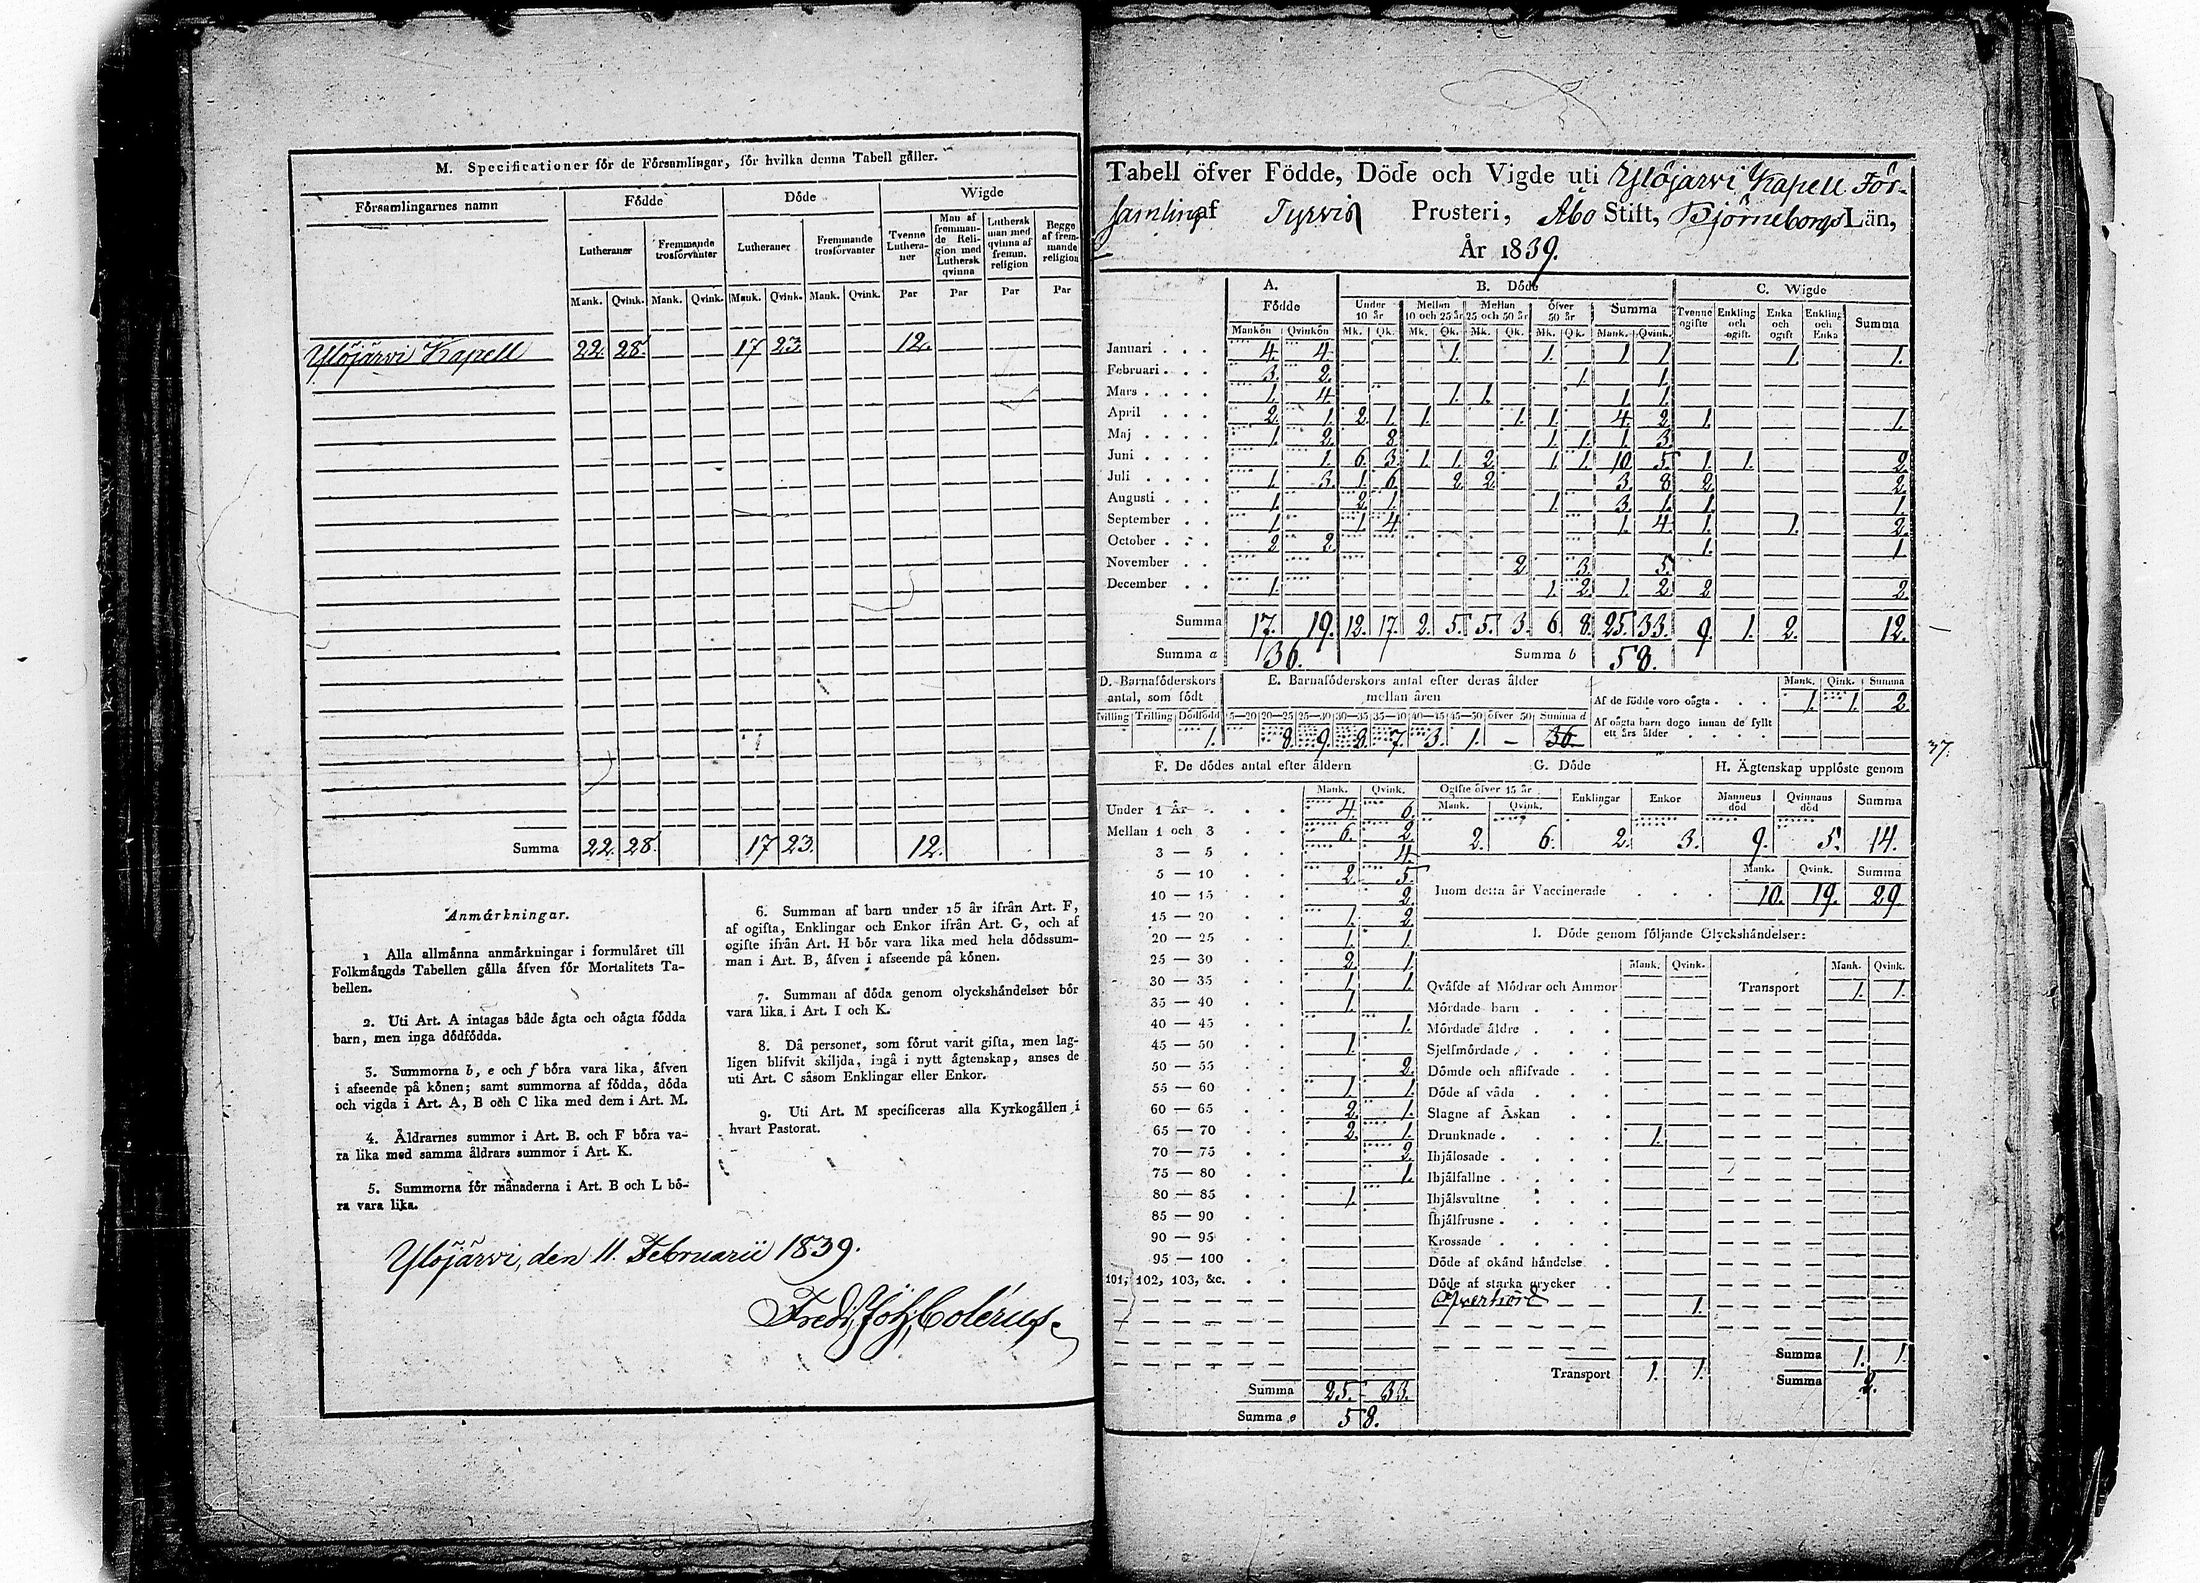 M. Specificationer för de Församlingar, för hvilka denna Tabell gäller.
Församlingarnes namn Födde Döde Wigde
Lutheraner Fremmande trosförvanter Lutheraner Fremmande trosförvanter Tvenne Lutheraner Man af fremmande Religion med Luthersk qvinna Luthersk man med qvinna af fremm. religion Begge af fremmande religion
Mank. Qvink. Mank. Qvink. Mank. Qvink. Mank. Qvink. Par Par Par Par
Ylöjärvi Kapell 22. 28. 17 23. 12.
Summa 22. 28. 17 23. 12.
Anmärkningar.
1 Alla allmänna anmärkningar i formuläret till
Folkmängds Tabellen gälla äfven för Mortalitets Ta-
bellen.
2. Uti Art. A intagas både ägta och oägta födda
barn, men inga dödfödda.
3. Summorna b, e och f böra vara lika, äfven
i afseende på könen; samt summorna af födda, döda
och vigda i Art. A, B och C lika med dem i Art. M.
4. Äldrarnes summor i Art. B. och F böra va-
ra lika med samma äldrars summor i Art. K.
5. Summorna för månaderna i Art. B och L bö-
ra vara lika.
6. Summan af barn under 15 år ifrån Art. F,
af ogifta, Enklingar och Enkor ifrån Art. G, och af
ogifte ifrån Art. H bör vara lika med hela dödssum-
man i Art. B, äfven i afseende på könen.
7. Summan af döda genom olyckshändelser bör
vara lika i Art. I och K.
8. Då personer, som förut varit gifta, men lag-
ligen blifvit skiljda, ingå i nytt ägtenskap, anses de
uti Art. C såsom Enklingar eller Enkor.
9. Uti Art. M specificeras alla Kyrkogällen i
hvart Pastorat.
Ylöjärvi, den 11. Februarii 1839.
Tabell öfver Födde, Döde och Vigde uti Ylöjärvi Kapell För-
samling af Tyrvis Prosteri, Åbo Stift, Björneborgs Län,
År 1839.
A. Födde B. Döde C. Wigde
Under 10 år Mellan 10 och 25 år Mellan 25 och 50 år öfver 50 år Summa Tvenne ogifte Enkling och ogift. Enka och ogift Enkling och Enka Summa
Mankön Qvinkön Mk. Qk. Mk. Qk. Mk. Qk. Mk. Qk. Mank. Qvink.
Januari 4. 4. 1. 1. 1. 1. 1. 1.
Februari 3. 2. 1. 1.
Mars 1. 4 1. 1. 1. 1.
April 2. 1. 2. 1. 1. 1. 1. 4. 2. 1. 1.
Maj 1. 2. 8. 1. 1. 1. 3.
Juni 1. 6. 3. 1. 1. 2. 1. 1. 10. 5. 1. 1. 2.
Juli 1. 3. 1. 6. 2. 2. 3. 8. 2. 2.
Augusti 1. 2. 1. 1. 3. 1. 1. 1.
September 1. 1. 4. 1. 4. 1. 1. 2.
October 2. 2. 1. 1
November 2. 3. 5.
December 1. 1. 2. 1. 2. 2. 2.
Summa 17. 19. 12. 17. 2. 5. 5. 3. 6. 8. 25. 33. 9. 1. 2. 12.
Summa a 36. Summa b 58.
D. Barnaföderskors antal, som födt
Tvilling Trilling Dödfödd
1.
E. Barnaföderskors antal efter deras ålder mellan åren
15—20 20—25 25—30 30—35 35—40 40—45 45—50 öfver 50 Summa d
8. 9. 8. 7. 3. 1. — 36.
Mank. Qink. Summa
Af de födde voro oägta 1. 1. 2.
Af oägta barn dogo innan de fyllt
ett års ålder
37.
F. De dödes antal efter åldern
Mank. Qvink.
Under 1 År 4. 6.
Mellan 1 och 3 6. 2.
3 — 5 4.
5 — 10 2. 5.
10 — 15 2.
15 — 20 1. 2.
20 — 25 1. 1.
25 — 30 2. 1.
30 — 35 1. 1.
35 — 40 1.
40 — 45 1.
45 — 50 1.
50 — 55 2.
55 — 60 1. 1.
60 — 65 2. 1.
65 — 70 2. 1.
70 — 75 2.
75 — 80 1.
80 — 85 1.
85 — 90
90 — 95
95 — 100
101, 102, 103, &c.
Summa 25. 33.
Summa e 58.
G. Döde
Ogifte öfver 15 år Enklingar Enkor
Mank. Qvink.
2. 6. 2. 3.
H. Ägtenskap upplöste genom
Mannens död Qvinnans död Summa
9. 5. 14.
Mank. Qvink. Summa
Inom detta år Vaccinerade 10. 19. 29.
I. Döde genom följande Olyckshändelser:
Mank. Qvink. Mank. Qvink.
Qväfde af Mödrar och Ammor Transport 1. 1.
Mördade barn
Mördade äldre
Sjelfmördade
Dömde och aflifvade
Döde af våda
Slagne af Åskan
Drunknade 1.
Ihjälosade
Ihjälfallne
Ihjälsvultne
Ihjälfrusne
Krossade
Döde af okänd händelse
Döde af starka drycker
1.
Summa 1. 1.
Transport 1. 1. Summa 2.